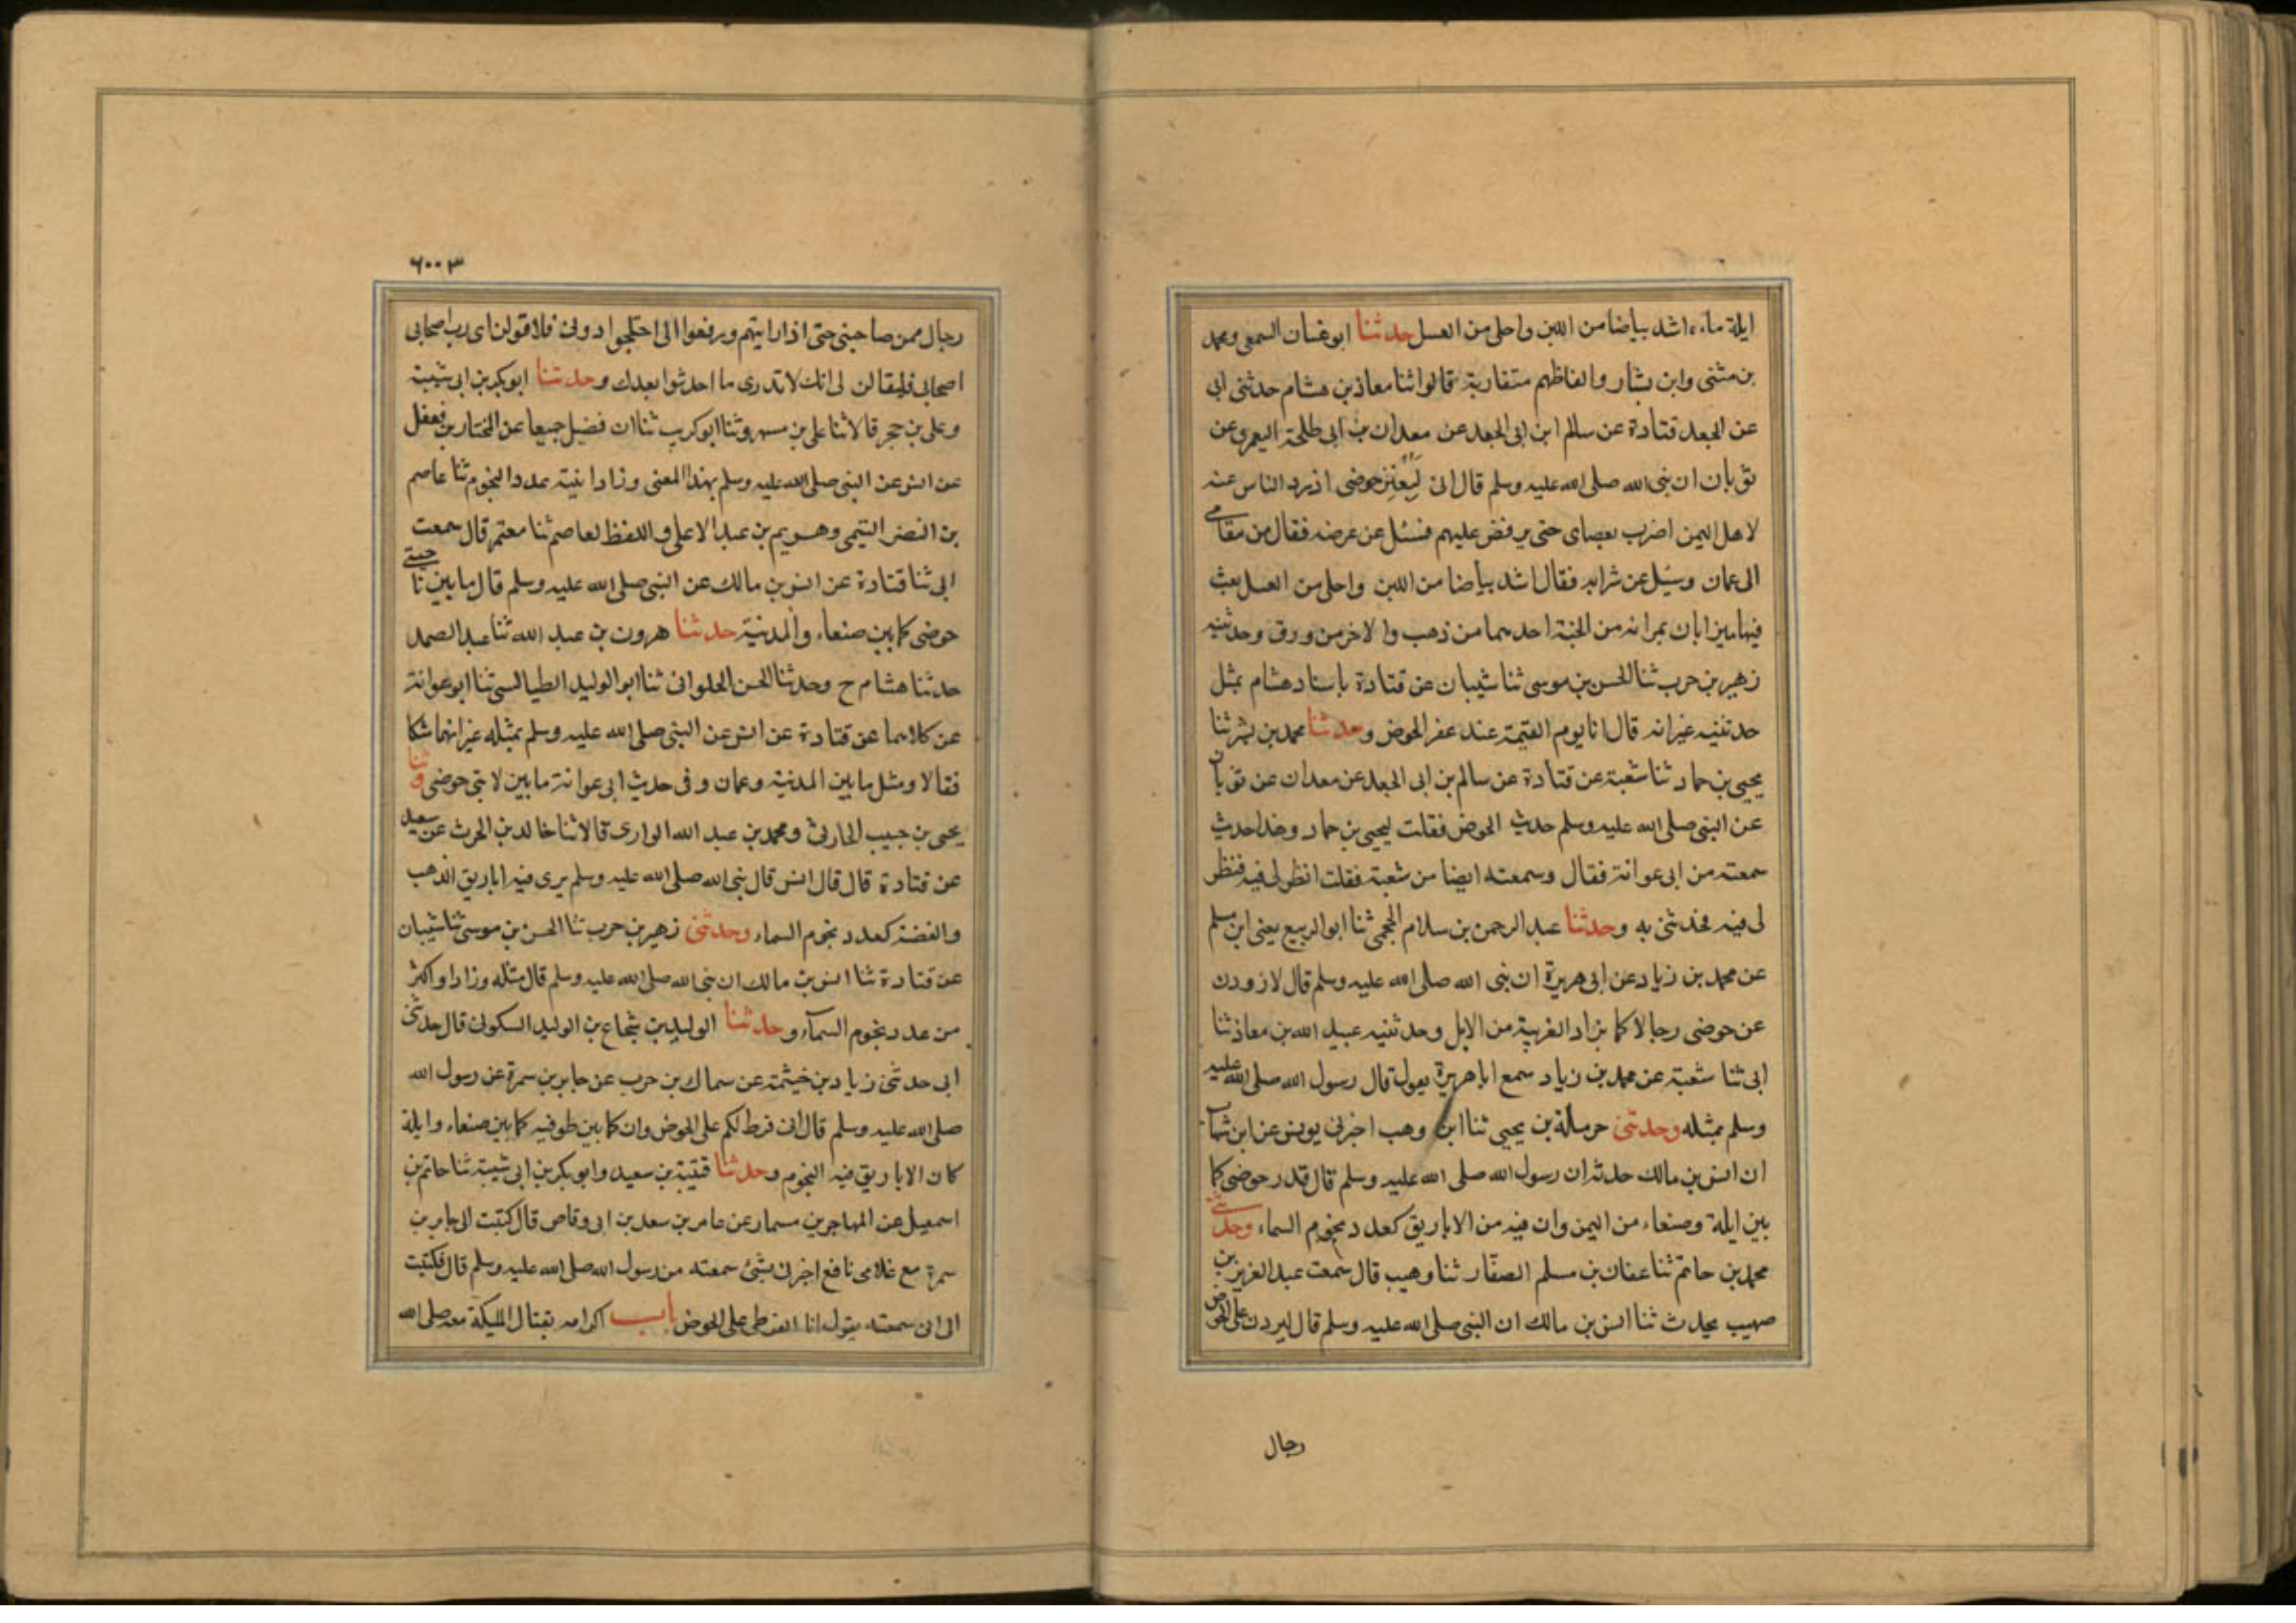 ايلة ماءه اشد بياضا من اللبن واحلى من العسل حدثنا ابو غسان السمعى ومحمد
بن مثنى وابن بشار والفاظهم متقاربة قالوا ثنا معاذ بن هشام حدثنى ابى
عن الجعد قتادة عن سالم ابن ابى الجعد عن معدان بن ابى طلحة اليعمرى عن
ثوبان ان نبى الله صلى الله عليه وسلم قال انى حوضى اذود الناس عنه
لاهل اليمن اضرب بعصاى حتى يرفض عليهم فسئل عن عرضه فقال من مقامى
الى عمان وسئل عن شرابه فقال اشد بياضا من اللبن واحلى من العسل يغث
فيها ميزابان يمرانه من الجنة احدهما من ذهب والاخر من ورق وحدثنيه
زهير بن حرب ثنا الحسن بن موسى ثنا شيبان عن قتادة باسناد هشام بمثل
حدثنيه غير انه قال انا يوم القيمة عند عقر الحوض وحدثنا محمد بن بشر ثنا
يحيى بن حماد ثنا شعبة عن قتادة عن سالم بن ابى الجعد عن معدان عن ثوبان
عن النبى صلى الله عليه وسلم حديث الحوض فقلت ليحيى بن حماد وهذا حديث
سمعته من ابى عوانة فقال وسمعته ايضا من شعبة فقلت انظر لى فيه فنظر
لى فيه فحدثنى به وحدثنا عبد الرحمن بن سلام الجمحى ثنا ابو الربيع يعنى ابن مسلم
عن محمد بن زياد عن ابى هريرة ان نبى الله صلى الله عليه وسلم قال لازودن
عن حوضى رجالا كما يزاد الغريبة من الابل وحدثنيه عبيد الله بن معاذ ثنا
ابى ثنا شعبة عن محمد بن زياد سمع ابا هريرة يقول قال رسول الله صلى الله عليه
وسلم بمثله وحدثنى حرملة بن يحيى ثنا ابن وهب اخبرنى يونس عن ابن شهاب
ان انس بن مالك حدثه ان رسول الله صلى الله عليه وسلم قال قدر حوضى كما
بين ايلة وصنعاء من اليمن وان فيه من الاباريق كعدد نجوم السماء وحدثنى
محمد بن حاتم ثنا عفان بن مسلم الصفار ثنا وهيب قال سمعت عبد العزيز بن
صهيب يحدث ثنا انس بن مالك ان النبى صلى الله عليه وسلم قال ليردن على الحوض
رجال
٦٠٠٣
رجال ممن صاحبنى حتى اذا رايتهم ورفعوا الى اختلجوا دونى فلاقولن اى رب اصحابى
اصحابى فليقالن لى انك لا تدرى ما احدثوا بعدك وحدثنا ابو بكر بن ابى شيبة
وعلى بن حجر قالا ثنا على بن مسهر وثنا ابو كريب ثنا ابن فضيل جميعا عن المختار بن فلفل
عن انس عن النبى صلى الله عليه وسلم بهذا المعنى وزاد انيته عدد النجوم ثنا عاصم
بن النضر التيمى وهريم بن عبد الاعلى واللفظ لعاصم ثنا معتمر قال سمعت
ابى ثنا قتادة عن انس بن مالك عن النبى صلى الله عليه وسلم قال ما بين ناحيتى
حوضى كما بين صنعاء والمدينة حدثنا هرون بن عبد الله ثنا عبد الصمد
حدثنا هشام ح وحدثنا الحسن الحلوانى ثنا ابو الوليد الطيالسى ثنا ابو عوانة
عن كلاهما عن قتادة عن انس عن النبى صلى الله عليه وسلم بمثله غير انهما شكا
فقالا ومثل ما بين المدينة وعمان وفى حديث ابى عوانة ما بين لابتى حوضى وثنا
يحيى بن حبيب الحارثى ومحمد بن عبد الله الوارى قالا ثنا خالد بن الحرث عن سعيد
عن قتادة قال قال انس قال نبى الله صلى الله عليه وسلم يرى فيه اباريق الذهب
والفضة كعدد نجوم السماء وحدثنى زهير بن حرب ثنا الحسن بن موسى ثنا شيبان
عن قتادة ثنا انس بن مالك ان نبى الله صلى الله عليه وسلم قال مثله وزاد او اكثر
من عدد نجوم السماء وحدثنا الوليد بن شجاع بن الوليد السكونى قال حدثنى
ابى حدثنى زياد بن خيثمة عن سماك بن حرب عن جابر بن سمرة عن رسول الله
صلى الله عليه وسلم قال انى فرط لكم على الحوض وان كما بين طوفيه كما بين صنعاء وايلة
كان الاباريق فيه النجوم وحدثنا قتيبة بن سعيد وابو بكر بن ابى شيبة ثنا حاتم بن
اسمعيل عن المهاجر بن مسمار عن عامر بن سعد بن ابى وقاص قال كتبت الى جابر بن
سمرة مع غلامى نافع اخبرنى بشئ سمعته من رسول الله صلى الله عليه وسلم قال فكتبت
الى انى سمعته يقول انا الفرط على الحوض باب اكرامه بقتال المليكة معه صلى الله